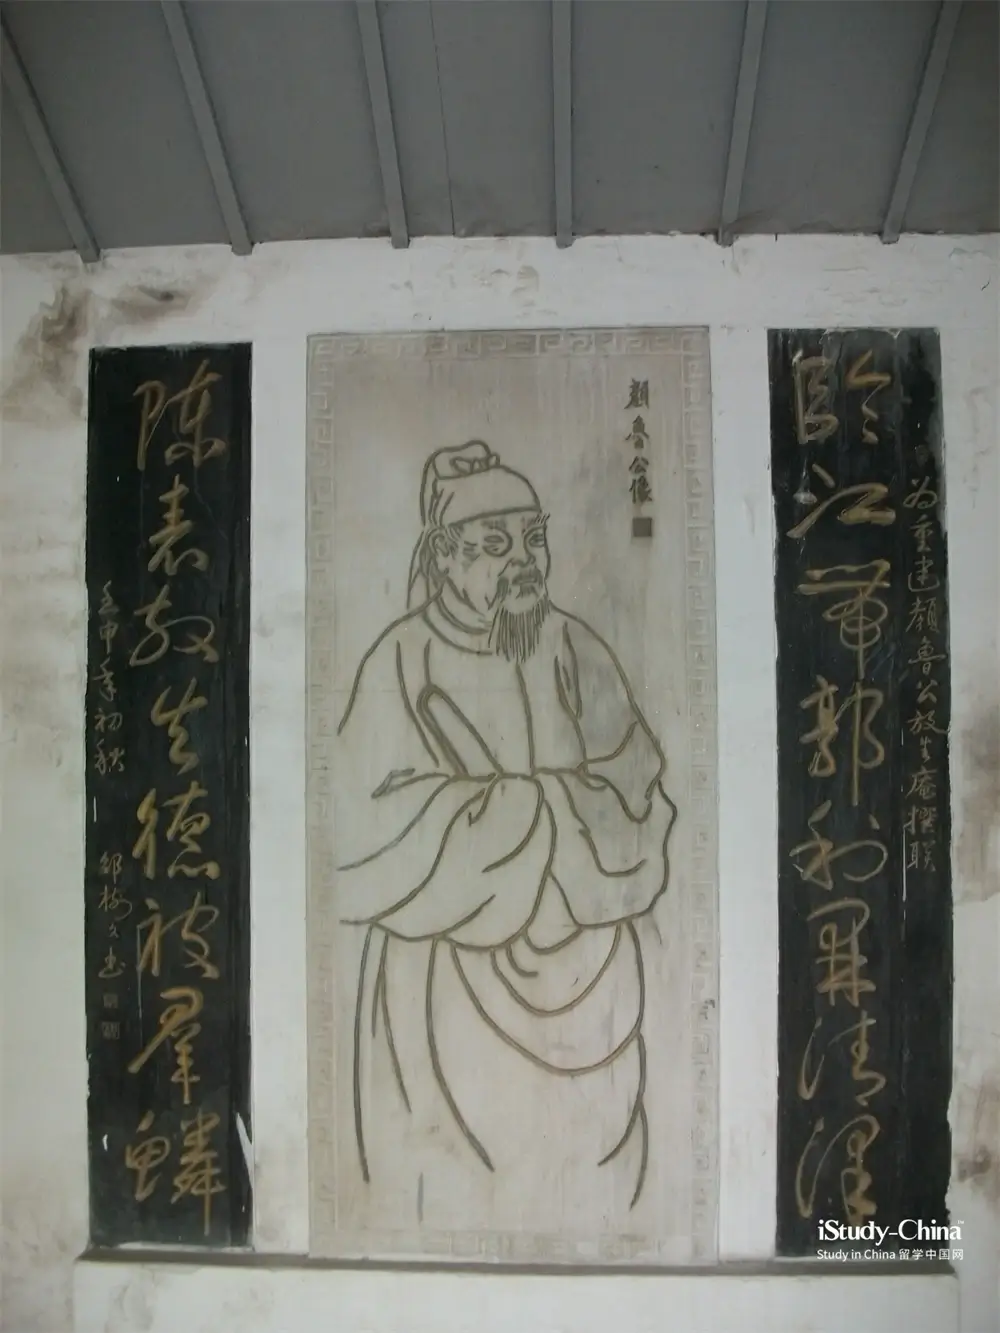 顏魯公像
為重建顏魯公放生庵撰联
臨江帶郭利清澤
陳表放生德被羣鱗
壬申年初秋 邵樹文書
iStudy-China
Study in China 留学中国网